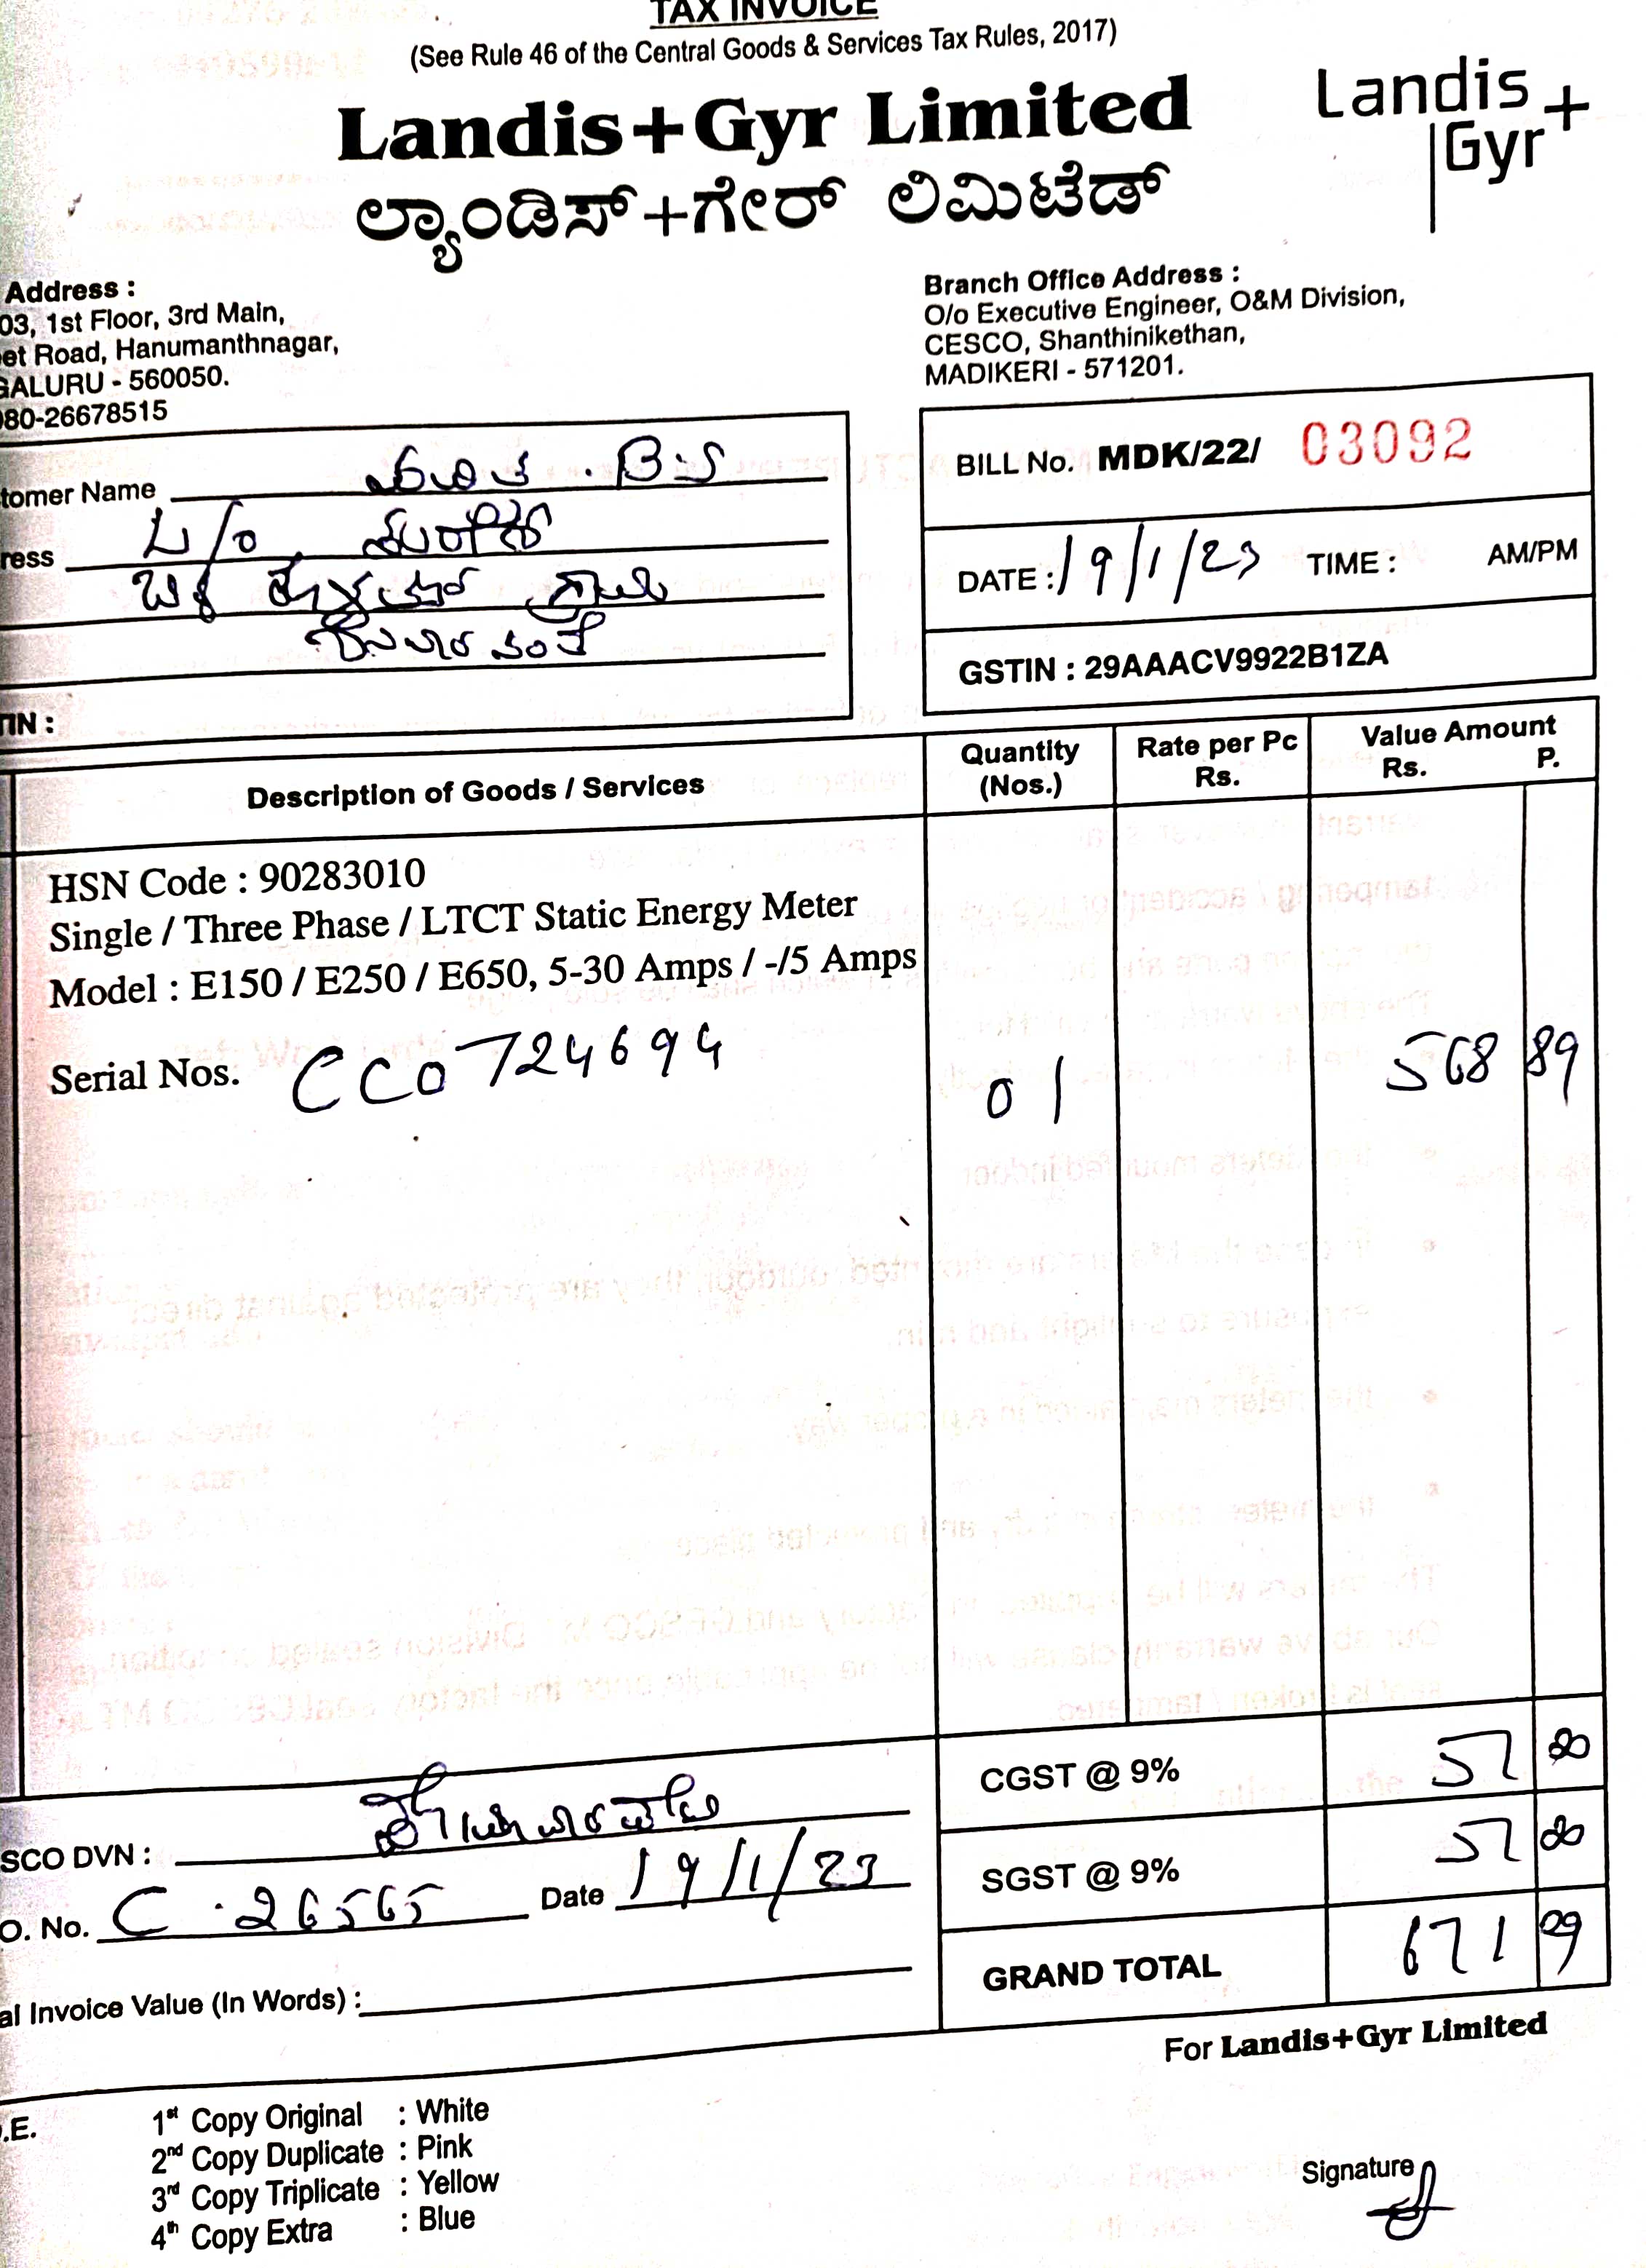 TAX INVOICE
(See Rule 46 of the Central Goods & Services Tax Rules, 2017)
Landis+Gyr Limited
ಲ್ಯಾಂಡಿಸ್+ಗೇರ್ ಲಿಮಿಟೆಡ್
Landis
Gyr+
Address :
03, 1st Floor, 3rd Main,
et Road, Hanumanthnagar,
GALURU - 560050.
080-26678515
Branch Office Address :
O/o Executive Engineer, O&M Division,
CESCO, Shanthinikethan,
MADIKERI - 571201.
tomer Name
ress
ಗ್ರಾಮ
ಶನಿವಾರಸಂತೆ
TIN :
BILL No. MDK/22/ 03092
DATE : 19/1/23 TIME : AM/PM
GSTIN : 29AAACV9922B1ZA
Description of Goods / Services
Quantity (Nos.)
Rate per Pc Rs.
Value Amount
Rs. P.
HSN Code : 90283010
Single / Three Phase / LTCT Static Energy Meter
Model : E150 / E250 / E650, 5-30 Amps / -/5 Amps
Serial Nos. CC0724694 01 568 89
CGST @ 9% 51 20
SGST @ 9% 51 20
GRAND TOTAL 671 29
SCO DVN :
O. No. C.26565 Date 19/1/23
al Invoice Value (In Words) :
For Landis+Gyr Limited
.E.
1st Copy Original : White
2nd Copy Duplicate : Pink
3rd Copy Triplicate : Yellow
4th Copy Extra : Blue
Signature